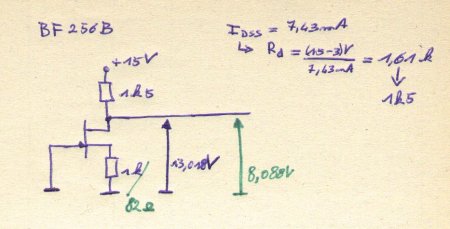 BF 256B
I_DSS = 7,43mA
↳ R_d = (15-3)V / 7,43mA = 1,61k
↓
1k5
+15V
1k5
1k
82Ω
13,018V
8,088V